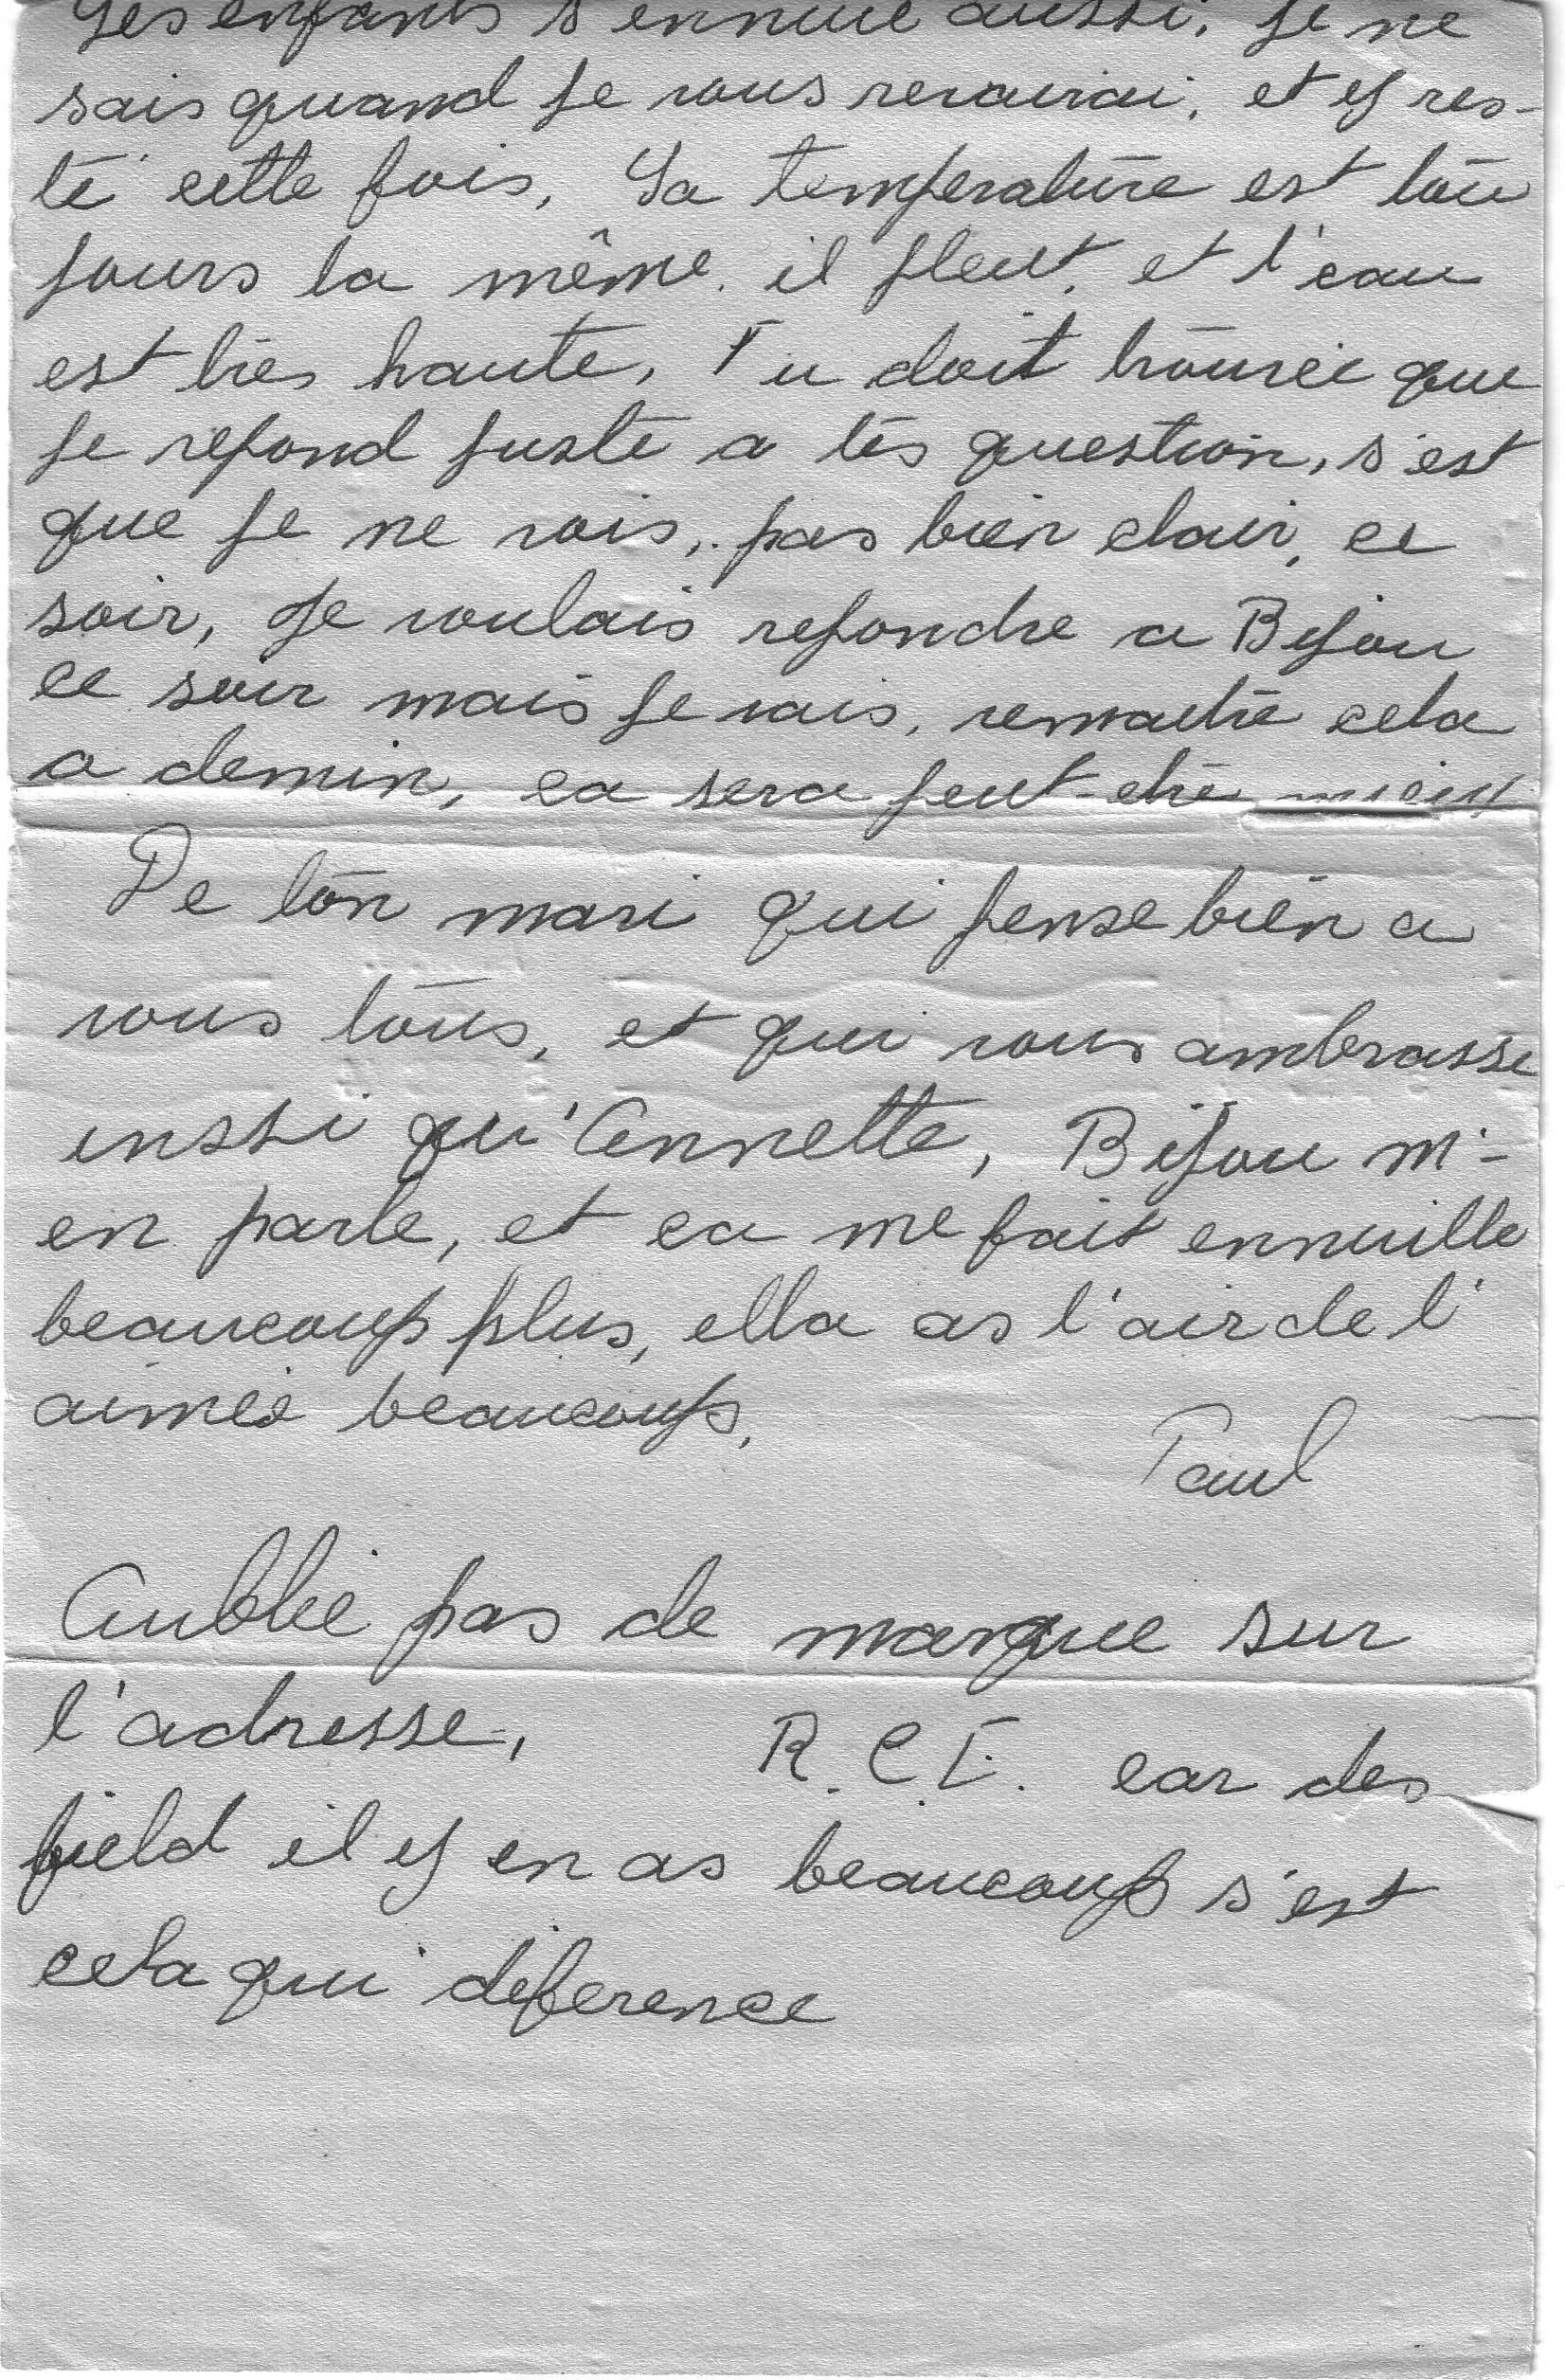 Les enfants s'ennuie aussi, Je ne
sais quand je vous revairai, et y res-
té cette fois, La temperature est tou
jours la même, il pleut, et l'eau
est très haute, Tu doit trouvée que
je repond juste a tes question, s'est
que je ne vois, pas bien clair, ce
soir, Je voulais repondre a Bijou
ce soir mais je vais, remaitre cela
a demin, ca sera peut-etre mieux
De ton mari qui pense bien a
vous tous, et qui vous ambrasse
inssi qu'Annette, Bijou m'-
en parle, et ca me fait ennuille
beaucoup plus, ella as l'air de l'
aimée beaucoup,
Paul
Aublie pas de marque sur
l'adresse, R.C.E. car des
field il y en as beaucoup s'est
cela qui diference